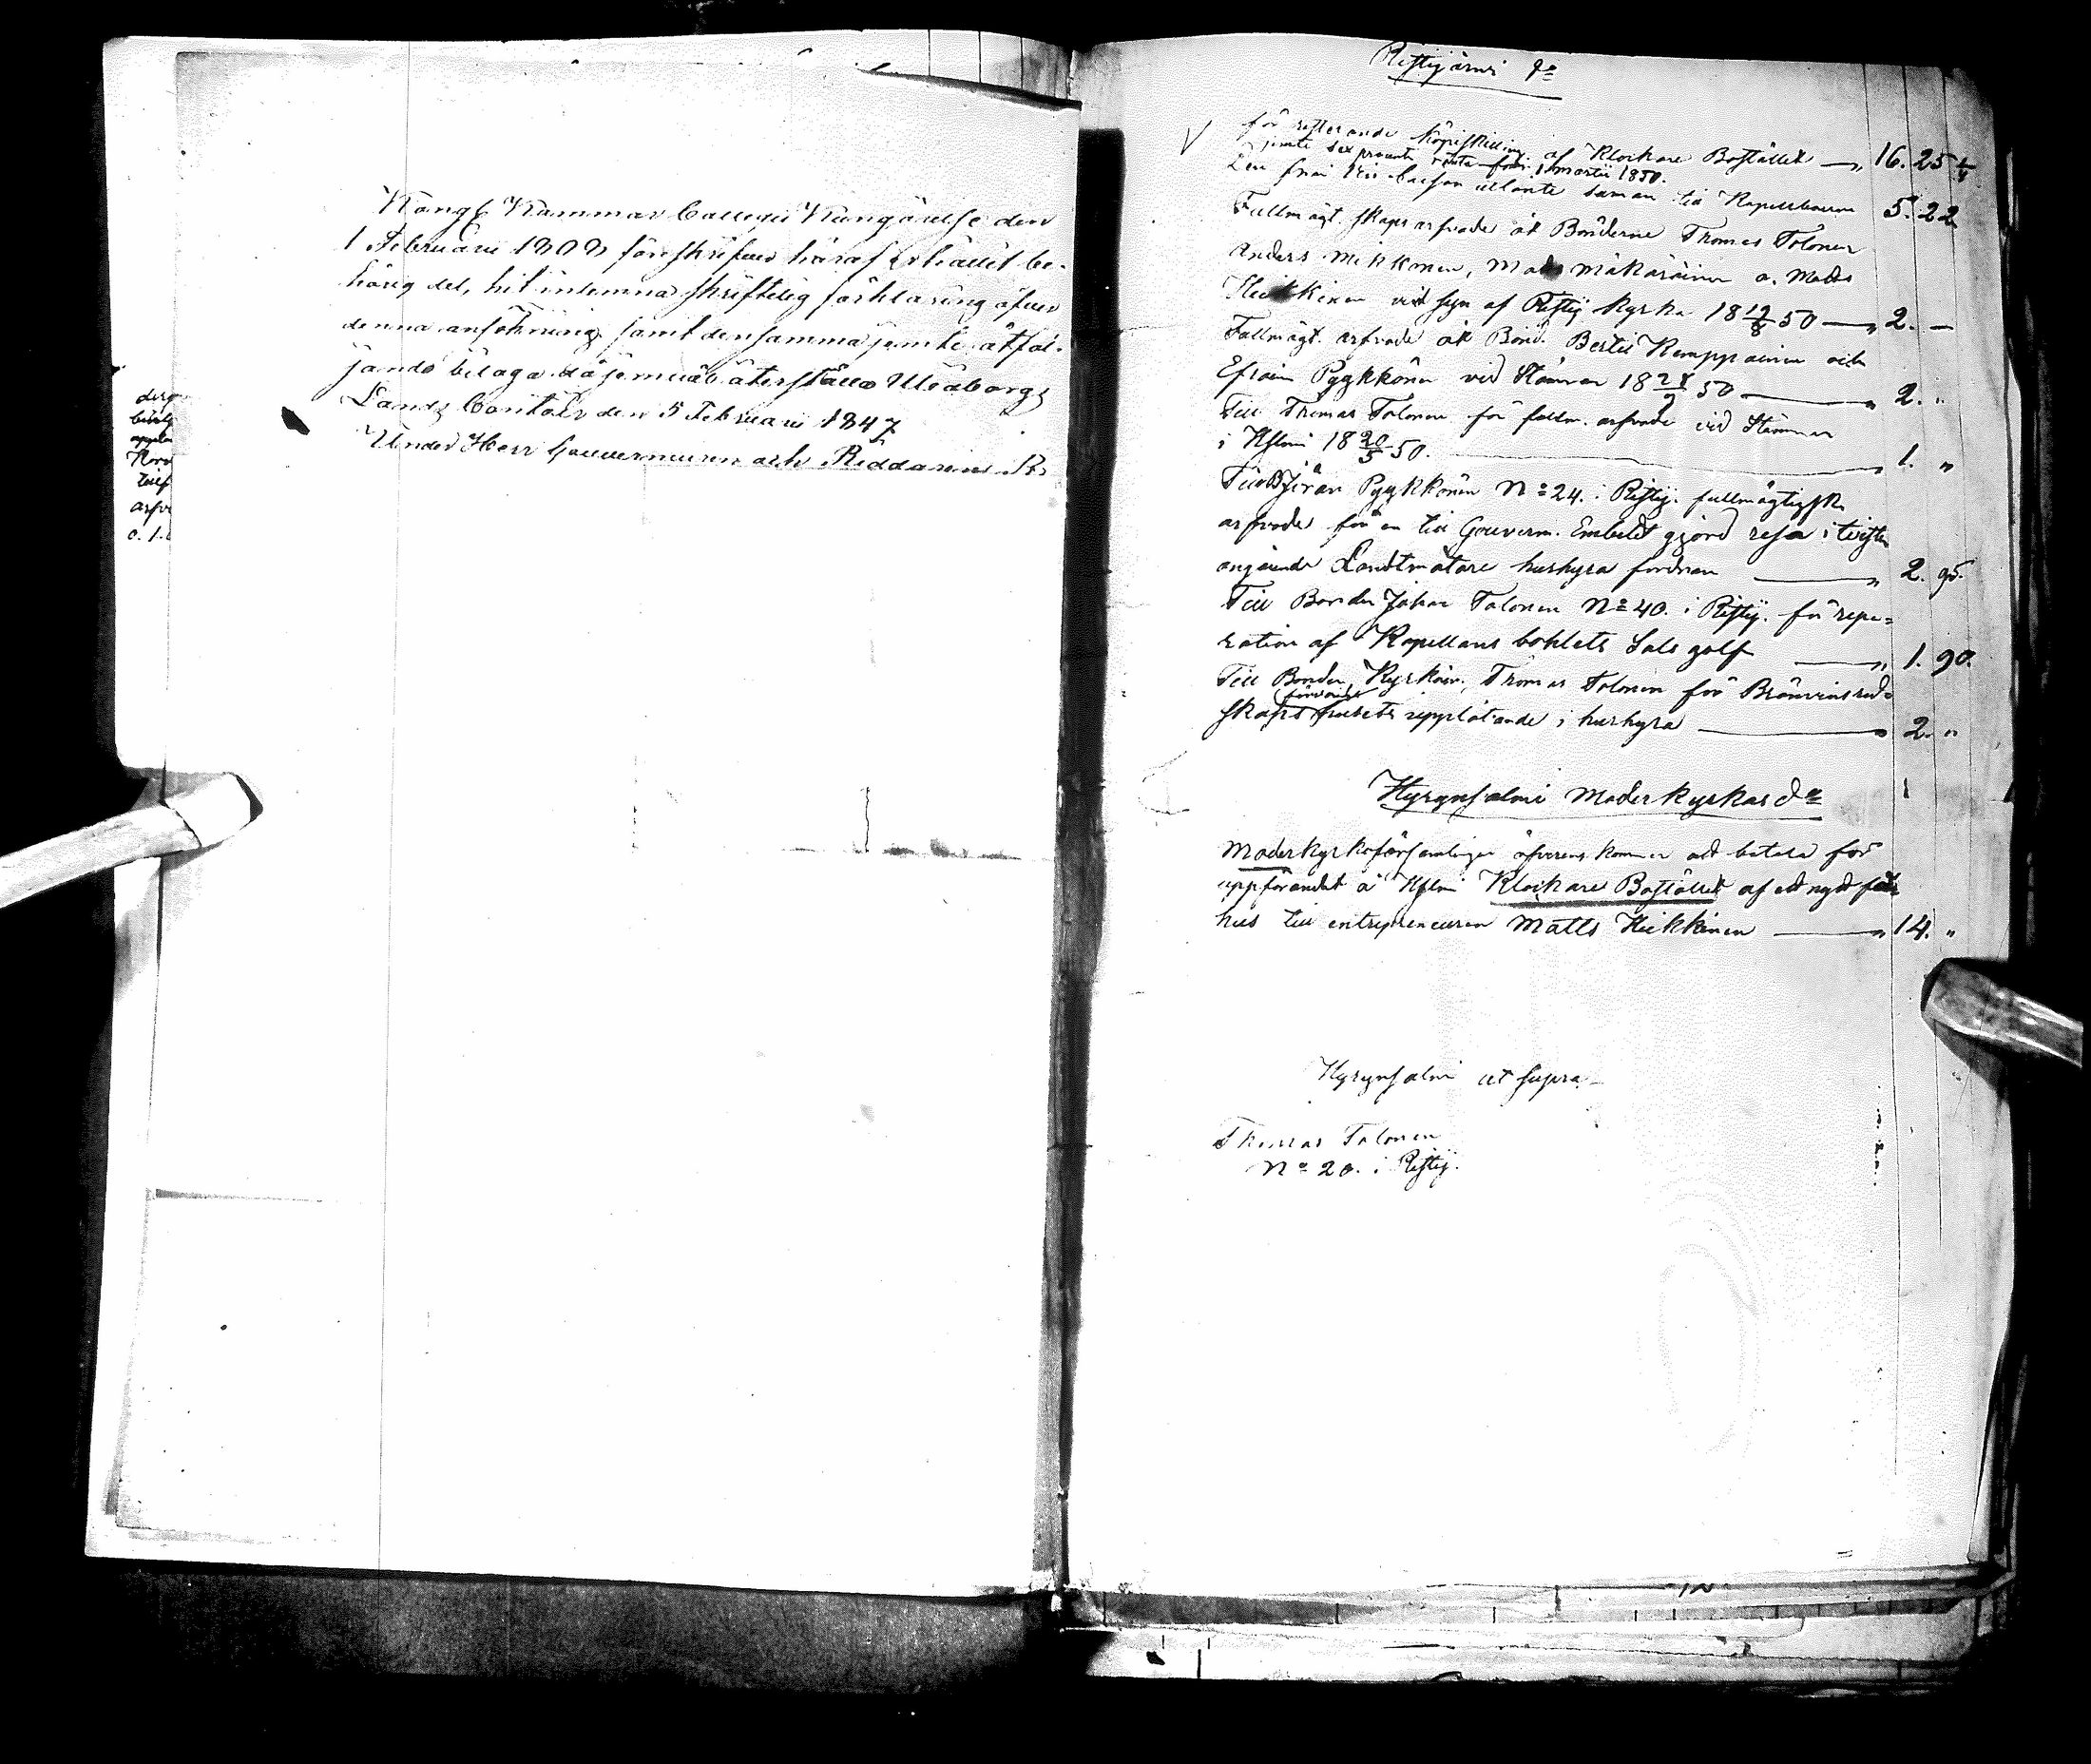 Kongl Kammar Collegii Kungörelse den
1 Februarii 1808 föreskrifver häraf erhållit be-
hörig del, hit inlemna skriftelig förklaring öfver
denna ansökning, samt densamma jemte åtföl-
jande bilaga återställa Uleåborgs
Lands Contoir den 5 Februarii 1847
Under Herr Gouverneuren och Riddarens
Ristijärvi
för resterande köpeskilling af Klockare Bostället — " 16. 25
jemte sex procents ränta från 1 martii 1850.
till Kapell 5. 22
Fullmägtskaps arfvode åt Bönderne Thomas Tolonen
Anders Mikkonen, Mats Mäkäräinen o. Mats
Heikkinen vid syn af Ristij kyrka 18 12/8 50 — " 2. —
Fullmägt. arfvode åt Bönd. Bertil Kemppainen och
Efraim Pyykkönen vid Stämman 18 50 — " 2. "
Till Thomas Tolonen för fullm. arfvode vid Stämman
i Hslmi 18 20/5 50. — " 1. "
Till Göran Pyykkönen No 24. i Ristij. fullmägtigsk.
arfvode för en till Gouvern. Embetet gjord resa i tvisten
angående Landtmätare hushyra fordran — " 2. 95.
Till Bonden Johan Tolonen No 40. i Ristij. för repa-
ration af Kapellans bohlets Sals golf — " 1. 90.
Till Bonden, Kyrkov. Thomas Tolonen för Brännvinsred-
skaps husets upplåtande i hushyra — " 2. "
Hyrynsalmi Moderkyrkas do
Moderkyrkoförsamlingen öfverenskommer att betala för
uppförandet å Hslmi Klockare Bostället af ett nytt fä-
hus till entrepreneuren Matts Heikkinen — " 14. "
Hyrynsalmi ut supra
Thomas Tolonen
No 20. i Ristij.